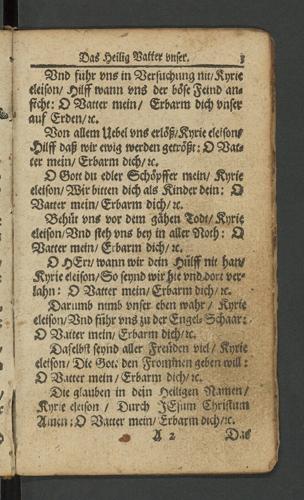 Das Heilig Vatter vnser. 3
Vnd führ vns in Versuchung nit/ Kyrie
eleison/ Hilff wann vns der böse Feind an-
ficht: O Vatter mein/ Erbarm dich vnser
auf Erden/ ꝛc.
Von allem Uebel vns erlöß/ Kyrie eleison/
Hilff daß wir ewig werden getröst: O Vat-
ter mein/ Erbarm dich/ ꝛc.
O Gott du edler Schöpffer mein/ Kyrie
eleison/ Wir bitten dich als Kinder dein: O
Vatter mein/ Erbarm dich/ ꝛc.
Behüt vns vor dem gähen Todt/ Kyrie
eleison/ Vnd steh vns bey in aller Noth: O
Vatter mein/ Erbarm dich/ ꝛc.
O HErr/ wann wir dein Hülff nit han/
Kyrie eleison/ So seynd wir hie vnd dort ver-
lahn: O Vatter mein/ Erbarm dich/ ꝛc.
Darumb nimb vnser eben wahr/ Kyrie
eleison/ Vnd führ vns zu der Engel-Schaar:
O Vatter mein/ Erbarm dich/ ꝛc.
Daselbst seynd aller Freuden viel/ Kyrie
eleison/ Die Gott den Frommen geben will:
O Vatter mein/ Erbarm dich/ ꝛc.
Die glauben in dein Heiligen Namen/
Kyrie eleison/ Durch JEsum Christum
Amen: O Vatter mein/ Erbarm dich/ ꝛc.
A 2 Das